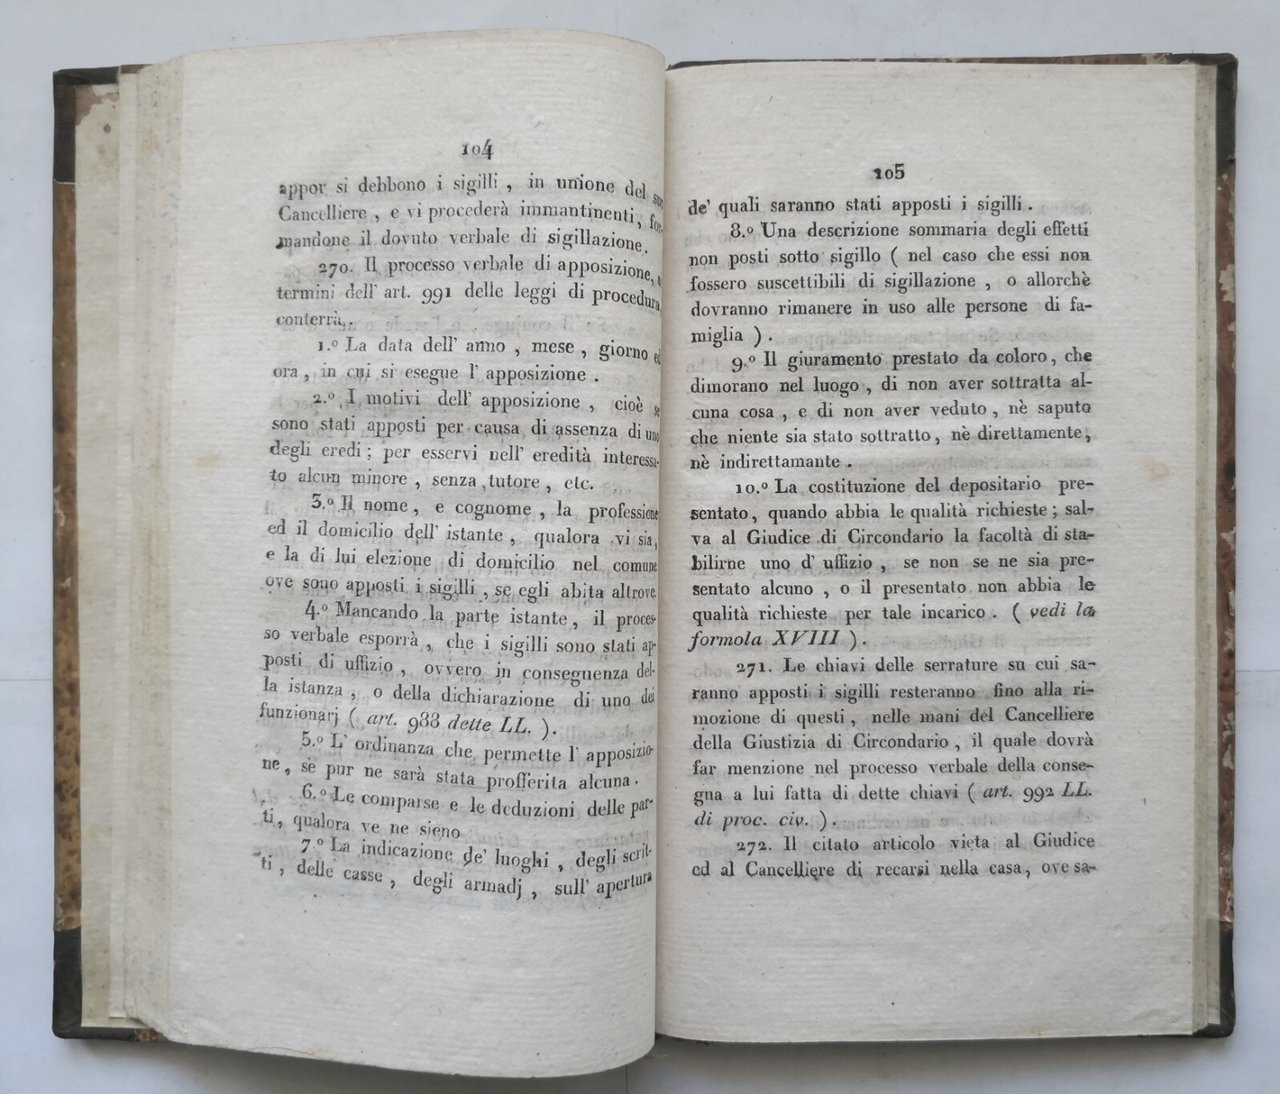 104
appor si debbono i sigilli , in unione del suo
Cancelliere , e vi procederà immantinenti , for-
mandone il dovuto verbale di sigillazione.
270. Il processo verbale di apposizione,
termini dell' art. 991 delle leggi di procedura
conterrà.
1.º La data dell' anno , mese , giorno ed
ora , in cui si esegue l' apposizione .
2.º I motivi dell' apposizione , cioè se
sono stati apposti per causa di assenza di uno
degli eredi ; per esservi nell' eredità interessa-
to alcun minore , senza tutore , etc.
3.º Il nome , e cognome , la professione
ed il domicilio dell' istante , qualora vi sia,
e la di lui elezione di domicilio nel comune
ove sono apposti i sigilli , se egli abita altrove.
4.º Mancando la parte istante , il proces-
so verbale esporrà , che i sigilli sono stati ap-
posti di uffizio , ovvero in conseguenza del-
la istanza , o della dichiarazione di uno dei
funzionarj ( art. 988 dette LL. ).
5.º L' ordinanza che permette l' apposizio-
ne , se pur ne sarà stata profferita alcuna .
6.º Le comparse e le deduzioni delle par-
ti, qualora ve ne sieno
7.º La indicazione de' luoghi , degli scrit-
ti , delle casse , degli armadj , sull' apertura
105
de' quali saranno stati apposti i sigilli .
8.º Una descrizione sommaria degli effetti
non posti sotto sigillo ( nel caso che essi non
fossero suscettibili di sigillazione , o allorchè
dovranno rimanere in uso alle persone di fa-
miglia ) .
9.º Il giuramento prestato da coloro , che
dimorano nel luogo , di non aver sottratta al-
cuna cosa , e di non aver veduto , nè saputo
che niente sia stato sottratto , nè direttamente ,
nè indirettamante .
10.º La costituzione del depositario pre-
sentato, quando abbia le qualità richieste ; sal-
va al Giudice di Circondario la facoltà di sta-
bilirne uno d' uffizio , se non se ne sia pre-
sentato alcuno , o il presentato non abbia le
qualità richieste per tale incarico . ( vedi la
formola XVIII ).
271. Le chiavi delle serrature su cui sa-
ranno apposti i sigilli resteranno fino alla ri-
mozione di questi , nelle mani del Cancelliere
della Giustizia di Circondario , il quale dovrà
far menzione nel processo verbale della conse-
gna a lui fatta di dette chiavi ( art. 992 LL.
di proc. civ. ).
272. Il citato articolo vieta al Giudice
ed al Cancelliere di recarsi nella casa, ove sa-